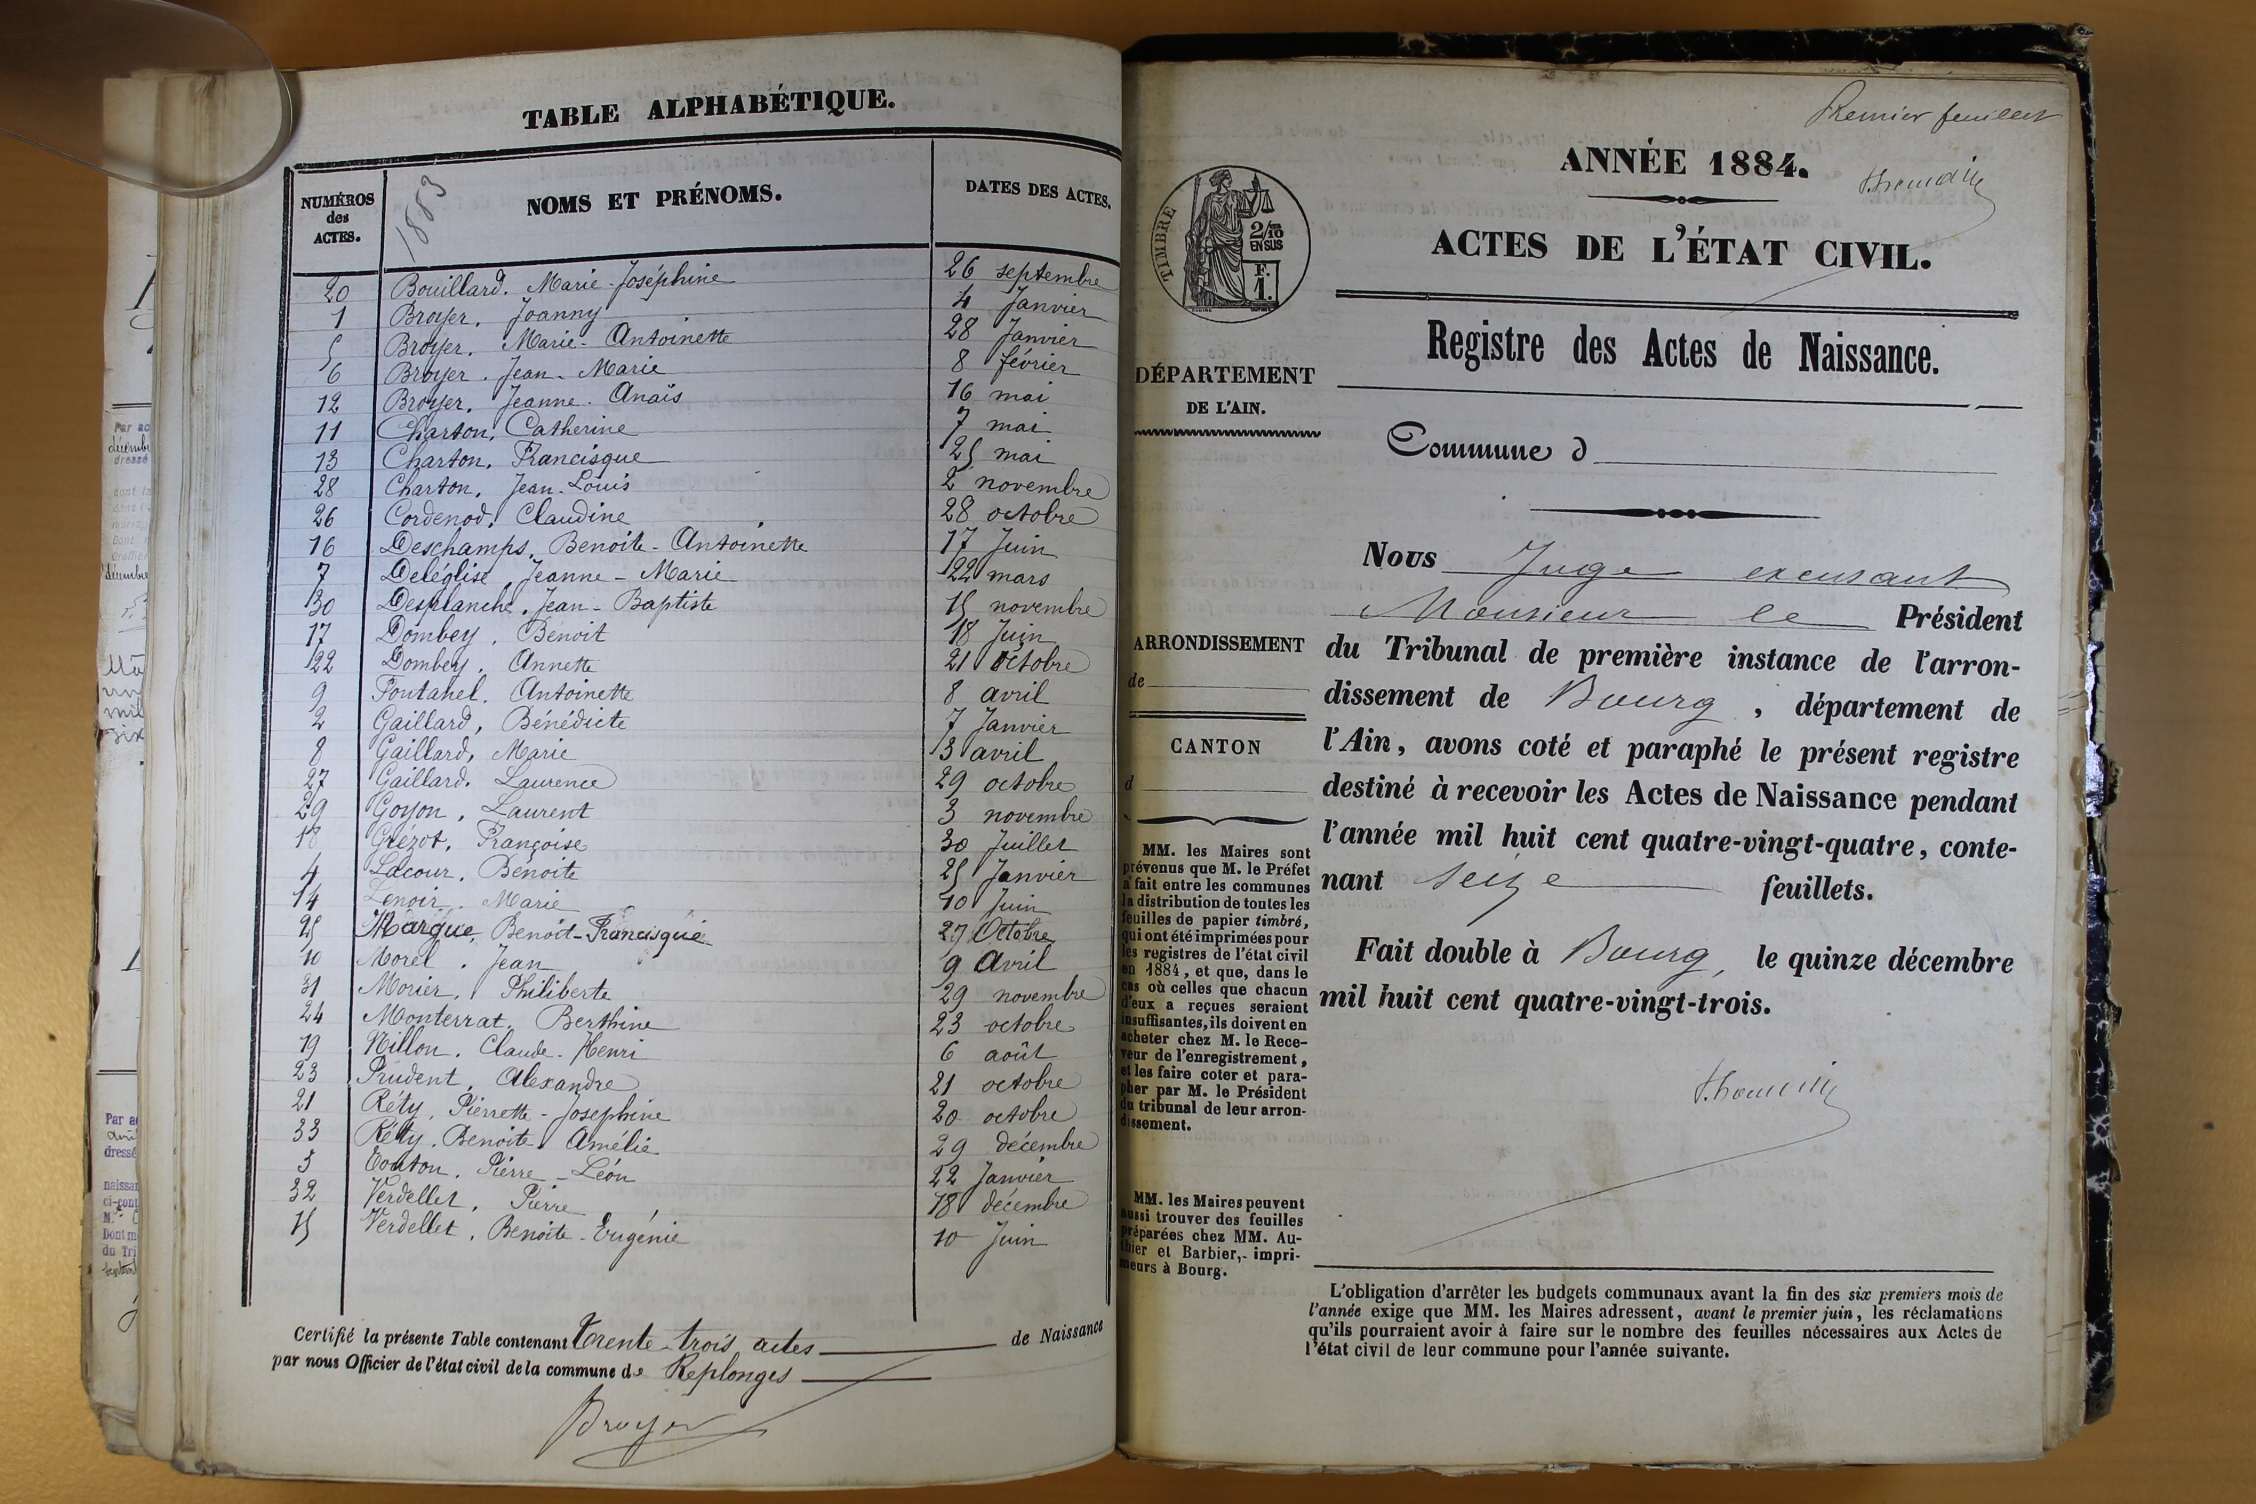 TABLE ALPHABÉTIQUE.
NUMÉROS des ACTES.
1883
NOMS ET PRÉNOMS.
DATES DES ACTES.
20 Bouillard. Marie-Joséphine 26 septembre
1 Broyer, Joanny 4 Janvier
5 Broyer, Marie-Antoinette 28 Janvier
6 Broyer. Jean-Marie 8 février
12 Broyer, Jeanne-Anaïs 16 mai
11 Charton, Catherine 7 mai
13 Charton, Francisque 25 mai
28 Charton, Jean-Louis 2 novembre
26 Cordenod, Claudine 28 octobre
16 Deschamps, Benoite-Antoinette 17 Juin
7 Deléglise, Jeanne-Marie 22 mars
30 Desplanche, Jean-Baptiste 15 novembre
17 Dombey, Benoit 18 Juin
22 Dombey, Annette 21 octobre
9 Fontanel, Antoinette 8 avril
2 Gaillard, Bénédicte 7 Janvier
8 Gaillard, Marie 3 avril
27 Gaillard. Laurence 29 octobre
29 Goyon, Laurent 3 novembre
18 Grézot, Françoise 30 Juillet
4 Lacour, Benoite 25 Janvier
14 Lenoir. Marie 10 Juin
25 Margue, Benoit-Francisque 27 Octobre
10 Morel. Jean 9 Avril
31 Morier, Philiberte 29 novembre
24 Monterrat, Berthine 23 octobre
19 Nillon. Claude-Henri 6 août
23 Prudent, Alexandre 21 octobre
21 Réty, Pierrette-Josephine 20 octobre
33 Réty, Benoite Amélie 29 décembre
3 Touton. Pierre-Léon 22 Janvier
32 Verdellet, Pierre 18 décembre
15 Verdellet, Benoite-Eugénie 10 Juin
Certifié la présente Table contenant Trente-trois actes de Naissance
par nous Officier de l'état civil de la commune de Replonges
Broyer
Premier feuillet
ANNÉE 1884.
ACTES DE L'ÉTAT CIVIL.
TIMBRE
2/10 EN SUS
F. 1.
Registre des Actes de Naissance.
DÉPARTEMENT
DE L'AIN.
Commune d
ARRONDISSEMENT
de
CANTON
d
MM. les Maires sont
prévenus que M. le Préfet
a fait entre les communes
la distribution de toutes les
feuilles de papier timbré,
qui ont été imprimées pour
les registres de l'état civil
en 1884, et que, dans le
cas où celles que chacun
d'eux a reçues seraient
insuffisantes, ils doivent en
acheter chez M. le Rece-
veur de l'enregistrement,
et les faire coter et para-
pher par M. le Président
du tribunal de leur arron-
dissement.
MM. les Maires peuvent
aussi trouver des feuilles
préparées chez MM. Au-
thier et Barbier, impri-
meurs à Bourg.
Nous Juge excusant
Monsieur le Président
du Tribunal de première instance de l'arron-
dissement de Bourg, département de
l'Ain, avons coté et paraphé le présent registre
destiné à recevoir les Actes de Naissance pendant
l'année mil huit cent quatre-vingt-quatre, conte-
nant seize feuillets.
Fait double à Bourg, le quinze décembre
mil huit cent quatre-vingt-trois.
L'obligation d'arrêter les budgets communaux avant la fin des six premiers mois de
l'année exige que MM. les Maires adressent, avant le premier juin, les réclamations
qu'ils pourraient avoir à faire sur le nombre des feuilles nécessaires aux Actes de
l'état civil de leur commune pour l'année suivante.